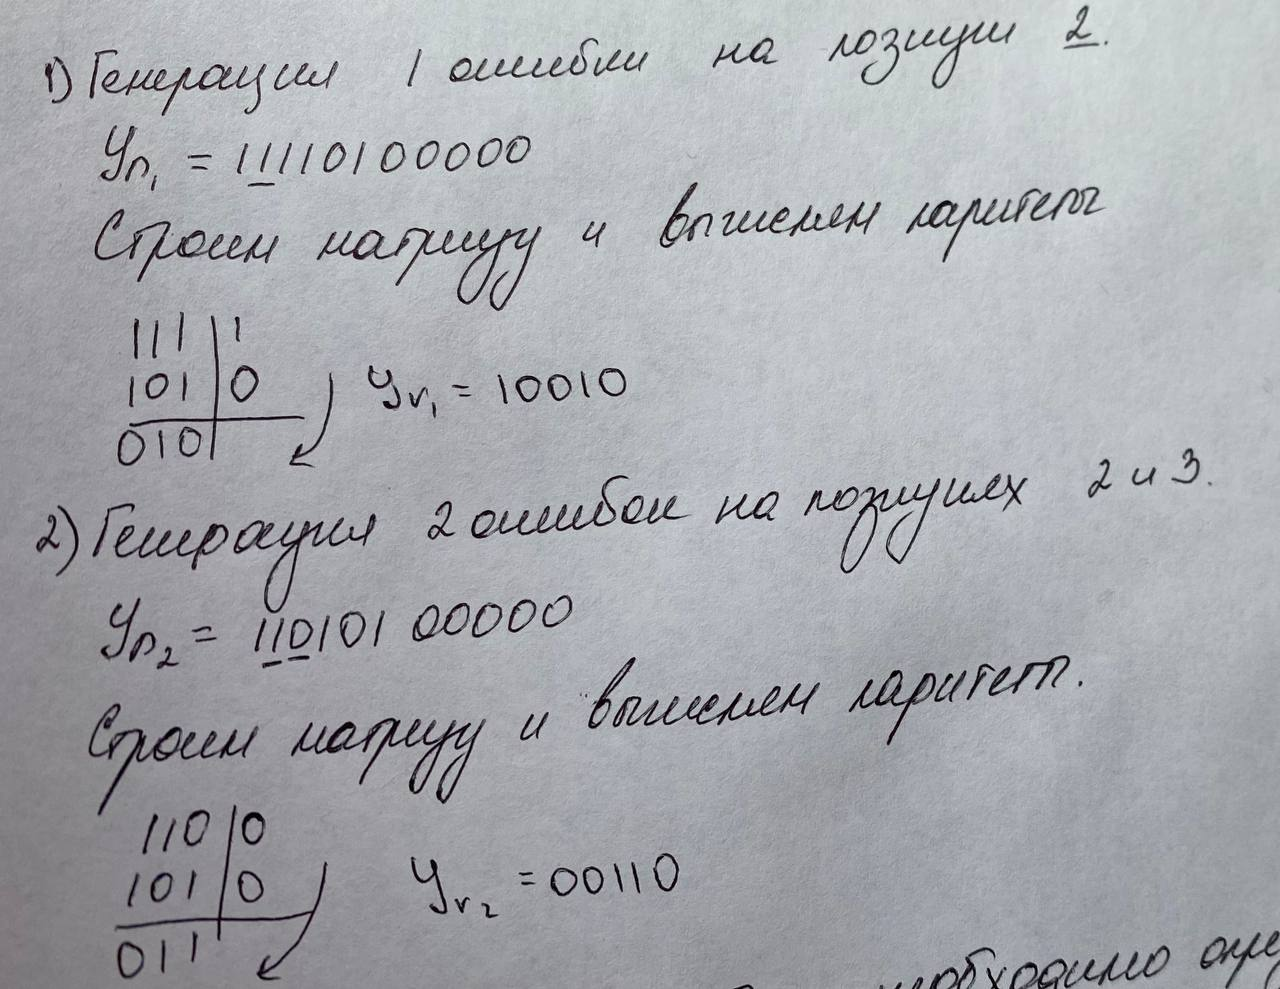 1) Генерация 1 ошибки на позиции 2.
Yn₁ = 11110100000
Строим матрицу и вычисляем паритеты
111|1
101|0
010|
Yr₁ = 10010
2) Генерация 2 ошибок на позициях 2 и 3.
Yn₂ = 11010100000
Строим матрицу и вычисляем паритеты.
110|0
101|0
011
Yr₂ = 00110
необходимо опре